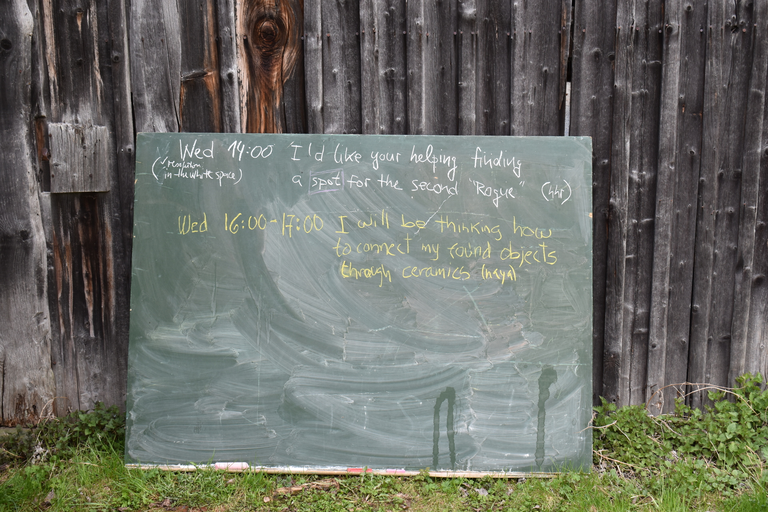 Wed 14:00 I'd like your helping finding
in the white space) a spot for the second "Rogue"
Wed 16:00-17:00 I will be thinking how
to connect my found objects
through ceramics